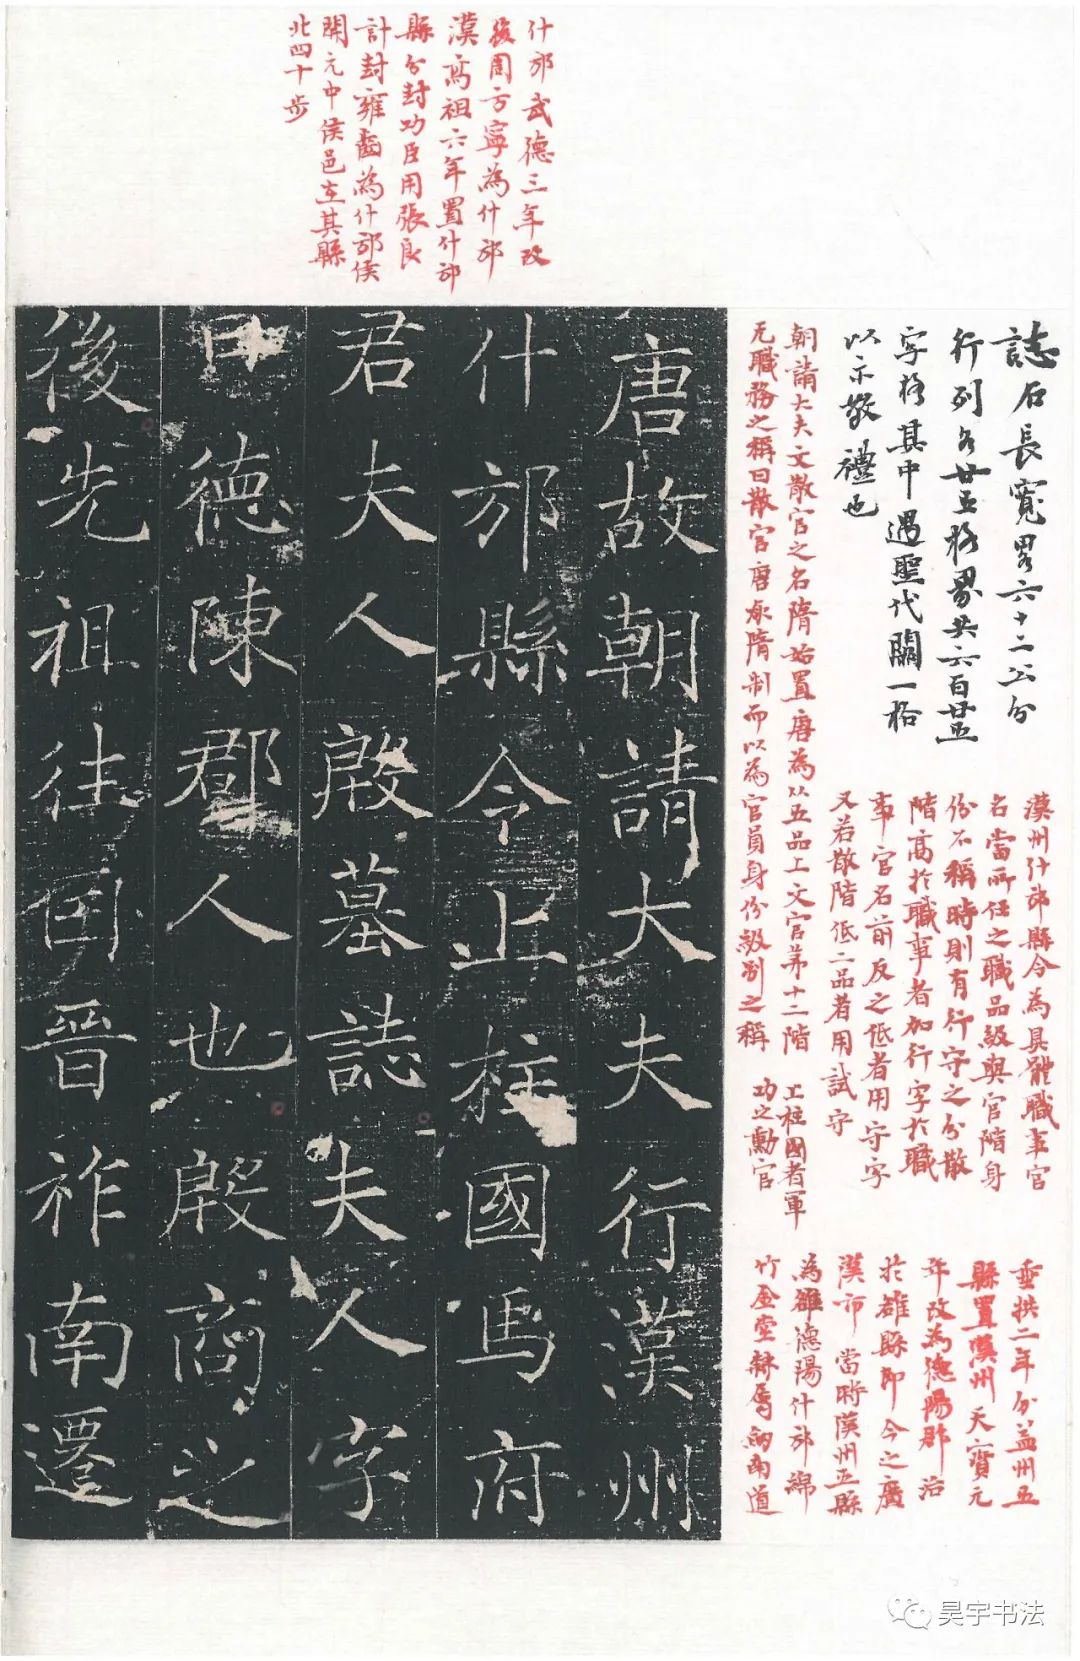 什邡武德三年改
後周方寧為什邡
漢高祖六年置什邡
縣分封功臣用張良
計封雍齒為什邡侯
開元中侯邑在其縣
北四十步
誌石長寬畧六十二公分
行列各廿五格界共六百廿五
字格其中遇聖代闕一格
以示敬禮也
朝請大夫文散官之名隋始置唐為以五品上文官第十二階
无職務之稱曰散官唐承隋制而以為官員身份級別之稱
漢州什邡縣令為具體職事官
名當所任之職品級與官階身
份不稱時則有行守之分散
階高於職事者加行字於職
事官名前反之低者用守字
又若散階低二品者用試守
上柱國者軍
功之勳官
垂拱二年分益州五
縣置漢州天寶元
年改為德陽郡治
於雒縣即今之廣
漢市當時漢州五縣
為雒德陽什邡綿
竹金堂隸屬劍南道
唐故朝請大夫行漢州
什邡縣令上柱國馬府
君夫人殷墓誌夫人字
日德陳郡人也殷商之
後先祖往因晉祚南遷
昊宇书法